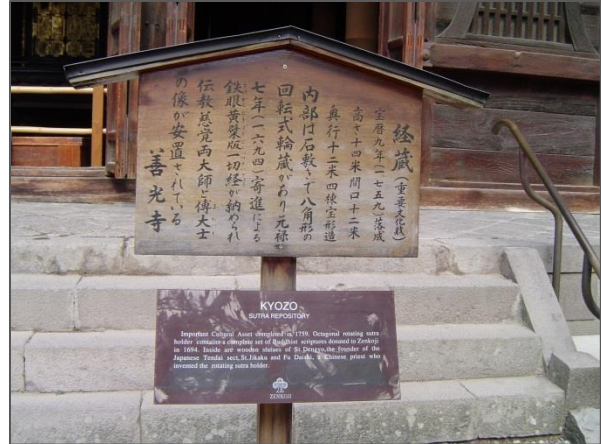 経蔵（重要文化財）
宝暦九年（一七五九）落成
高さ十四米間口十二米
奥行十二米四棟宝形造
内部は石敷きで八角形の
回転式輪蔵があり元禄
七年（一六九四）寄進による
鉄眼黄檗版一切経が納められ
伝教慈覚両大師と傅大士
の像が安置されている
善光寺
KYOZO
SUTRA REPOSITORY
Important Cultural Asset completed in 1759. Octagonal rotating sutra
holder contains a complete set of Buddhist scriptures donated to Zenkoji
in 1694. Inside are wooden statues of St.Dengyo, the founder of the
Japanese Tendai sect, St.Jikaku and Fu Daishi, a Chinese priest who
invented the rotating sutra holder.
ZENKOJI